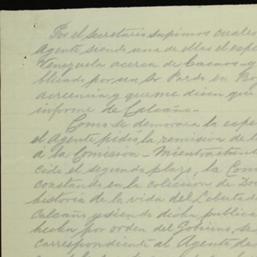 Por el secretario supimos cuales
Agente, siendo una de ellas el espe
Venezuela acerca de Casanos y
blicado por un Sr Pardo en
creencia y que me dicen que
informe de Calcaño.
Como se demorara la espe
el Agente pidió la remisión de l
a la Comisión. Mientras tan
cido el segundo plazo, la Com
constando en la coleccion de Do
historia de la vida del Libertad
Calcaño y siendo dicha publica
hecha por orden del Gobierno, se
correspondiente al Agente de